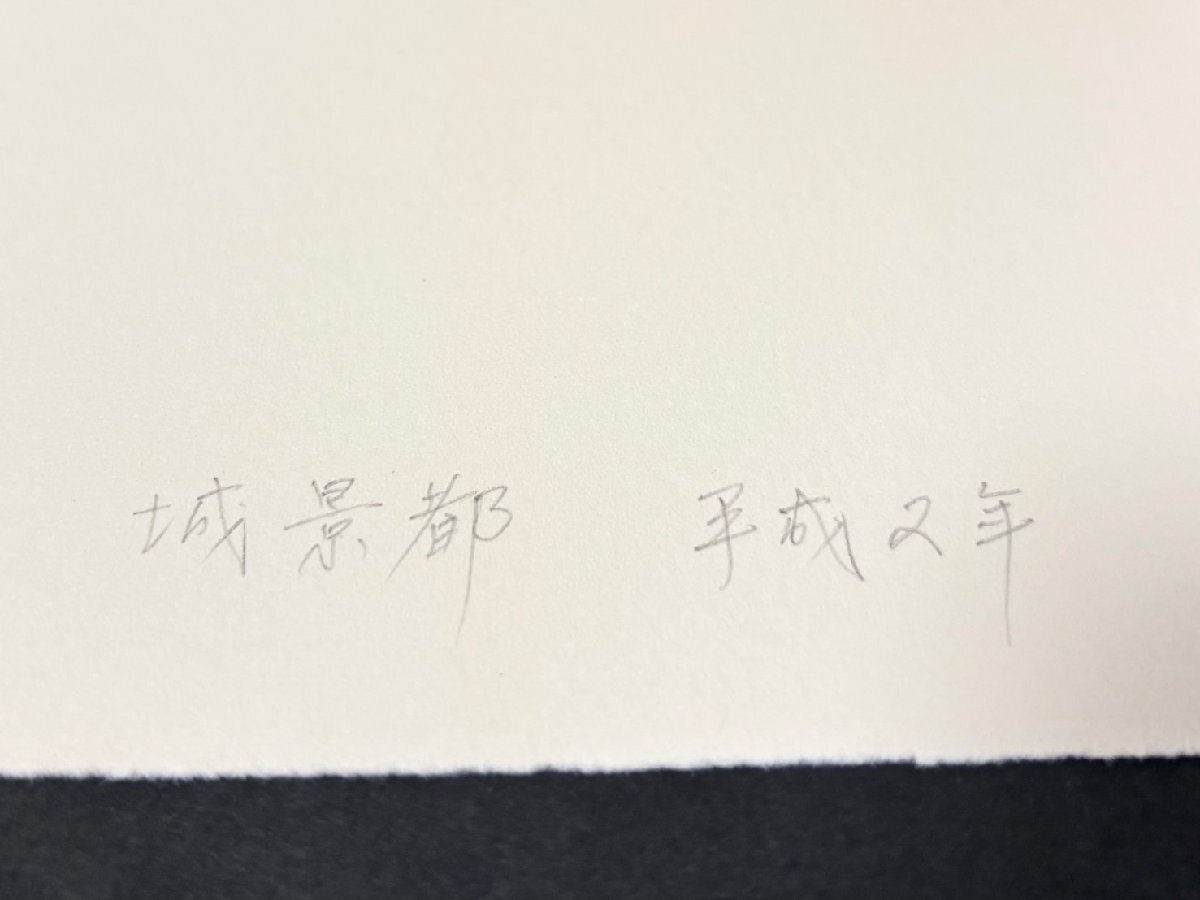 城景都 平成2年